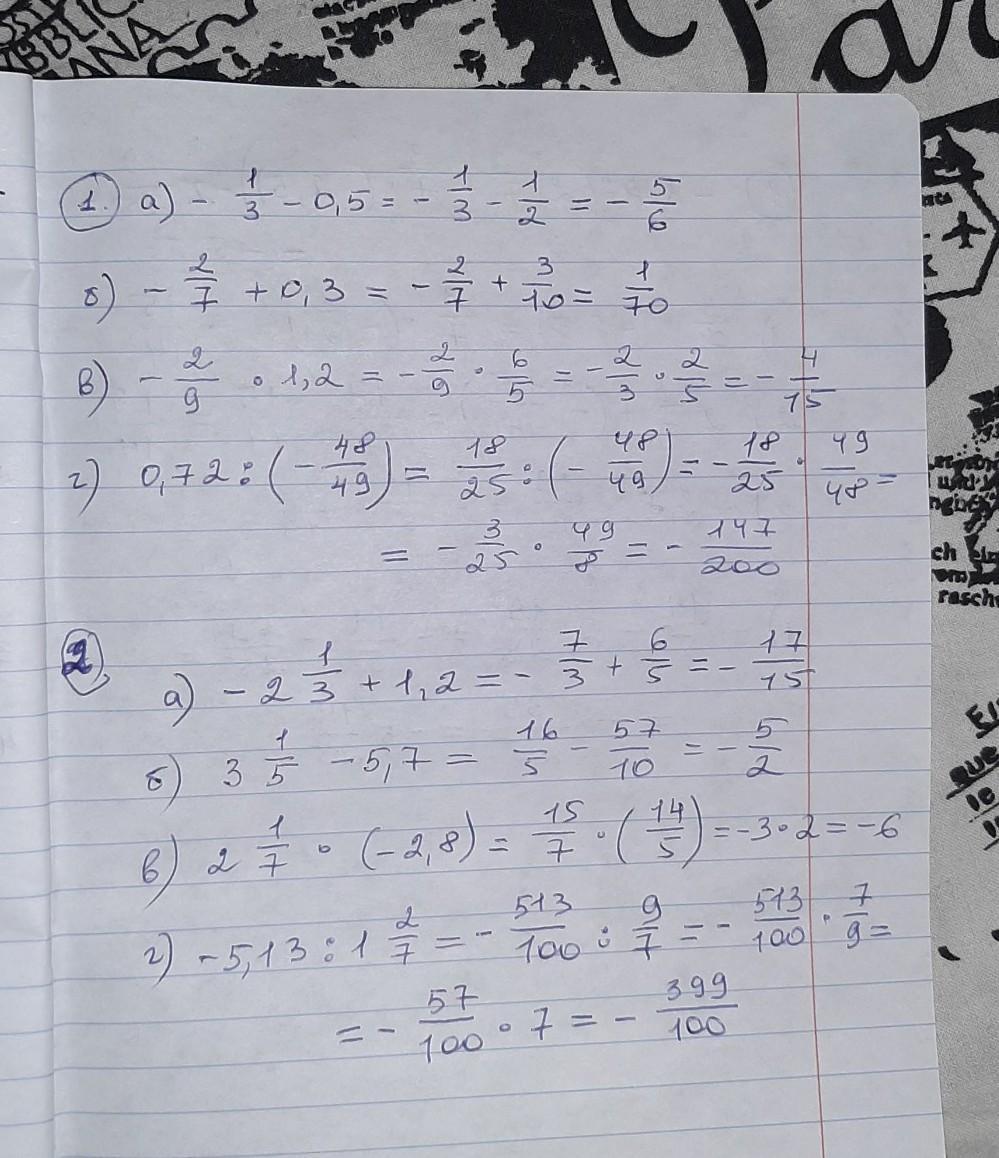 BBLIC
ANA
1. а) - 1/3 - 0,5 = - 1/3 - 1/2 = - 5/6
б) - 2/7 + 0,3 = - 2/7 + 3/10 = 1/70
в) - 2/9 · 1,2 = - 2/9 · 6/5 = - 2/3 · 2/5 = - 4/15
г) 0,72 : (- 48/49) = 18/25 : (- 48/49) = - 18/25 · 49/48 =
= - 3/25 · 49/8 = - 147/200
ch
rasch
2. а) - 2 1/3 + 1,2 = - 7/3 + 6/5 = - 17/15
б) 3 1/5 - 5,7 = 16/5 - 57/10 = - 5/2
que
le
в) 2 1/7 · (-2,8) = 15/7 · (14/5) = -3·2 = -6
г) -5,13 : 1 2/7 = - 513/100 : 9/7 = - 513/100 · 7/9 =
= - 57/100 · 7 = - 399/100